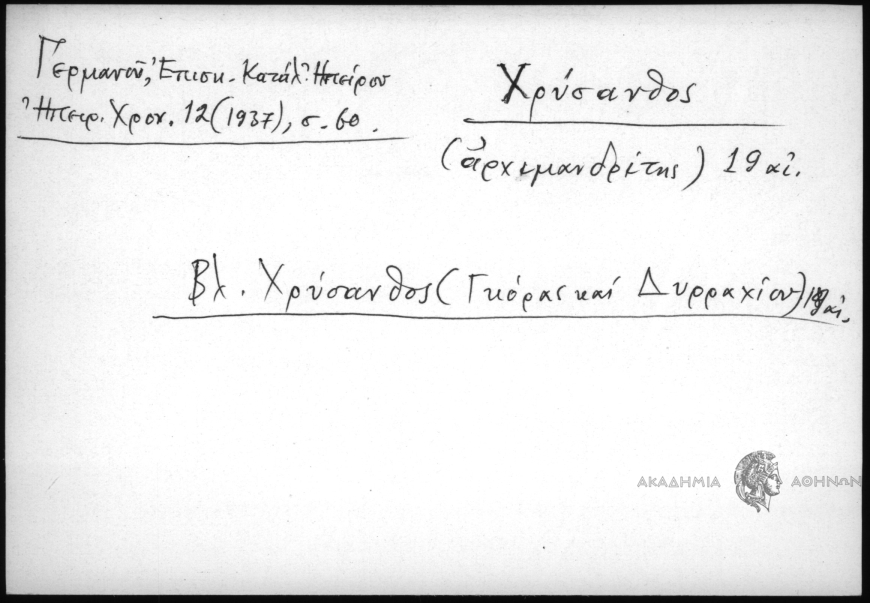 Γερμανοῦ, Ἐπισκ. Κατάλ. Ἠπείρου
Ἠπειρ. Χρον. 12 (1937), σ. 60.
Χρύσανθος
(ἀρχιμανδρίτης) 19 αἰ.
Βλ. Χρύσανθος (Γκόρας καί Δυρραχίου) αἰ.
ΑΚΑΔΗΜΙΑ ΑΘΗΝΩΝ